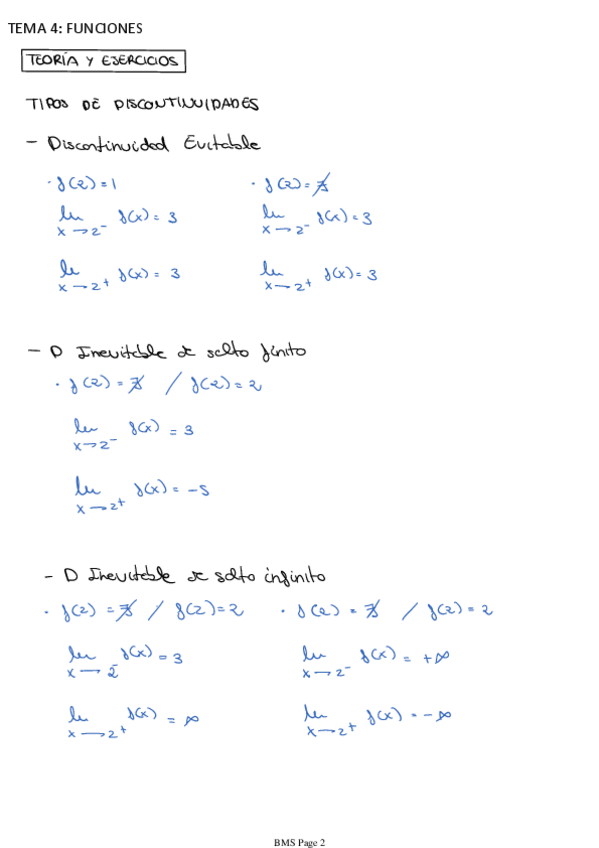 TEMA 4: FUNCIONES
TEORÍA Y EJERCICIOS
TIPOS DE DISCONTINUIDADES
- Discontinuidad Evitable
· f(2)=1 · f(2)=∄
lim x→2⁻ f(x)=3 lim x→2⁻ f(x)=3
lim x→2⁺ f(x)=3 lim x→2⁺ f(x)=3
- D Inevitable de salto finito
· f(2)=∄ / f(2)=2
lim x→2⁻ f(x)=3
lim x→2⁺ f(x)=-5
- D Inevitable de salto infinito
· f(2)=∄ / f(2)=2 · f(2)=∄ / f(2)=2
lim x→2⁻ f(x)=3 lim x→2⁻ f(x)=+∞
lim x→2⁺ f(x)=∞ lim x→2⁺ f(x)=-∞
BMS Page 2